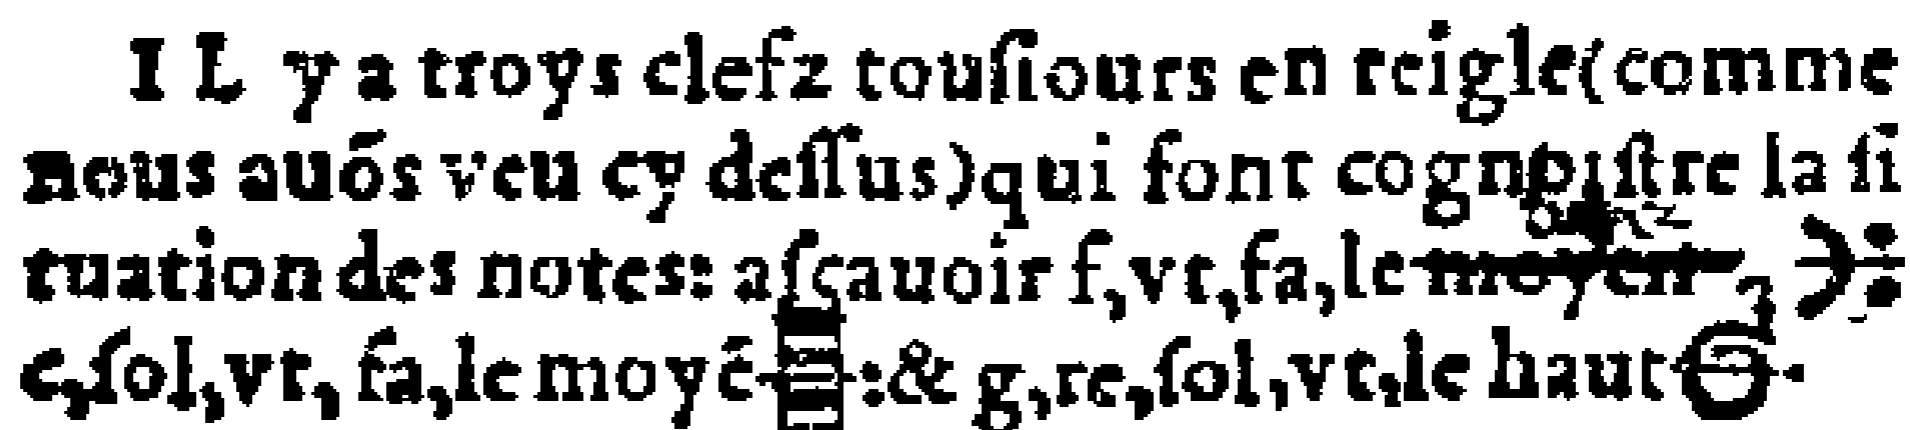 IL y a troys clefz touſiours en reigle(comme
nous auõs veu cy deſſus)qui font cognoiſtre la ſi
tuation des notes: aſçauoir f,vt,fa,le moyen
c,ſol,vt, fa,le moyẽ :& g,re,ſol,vt,le haut